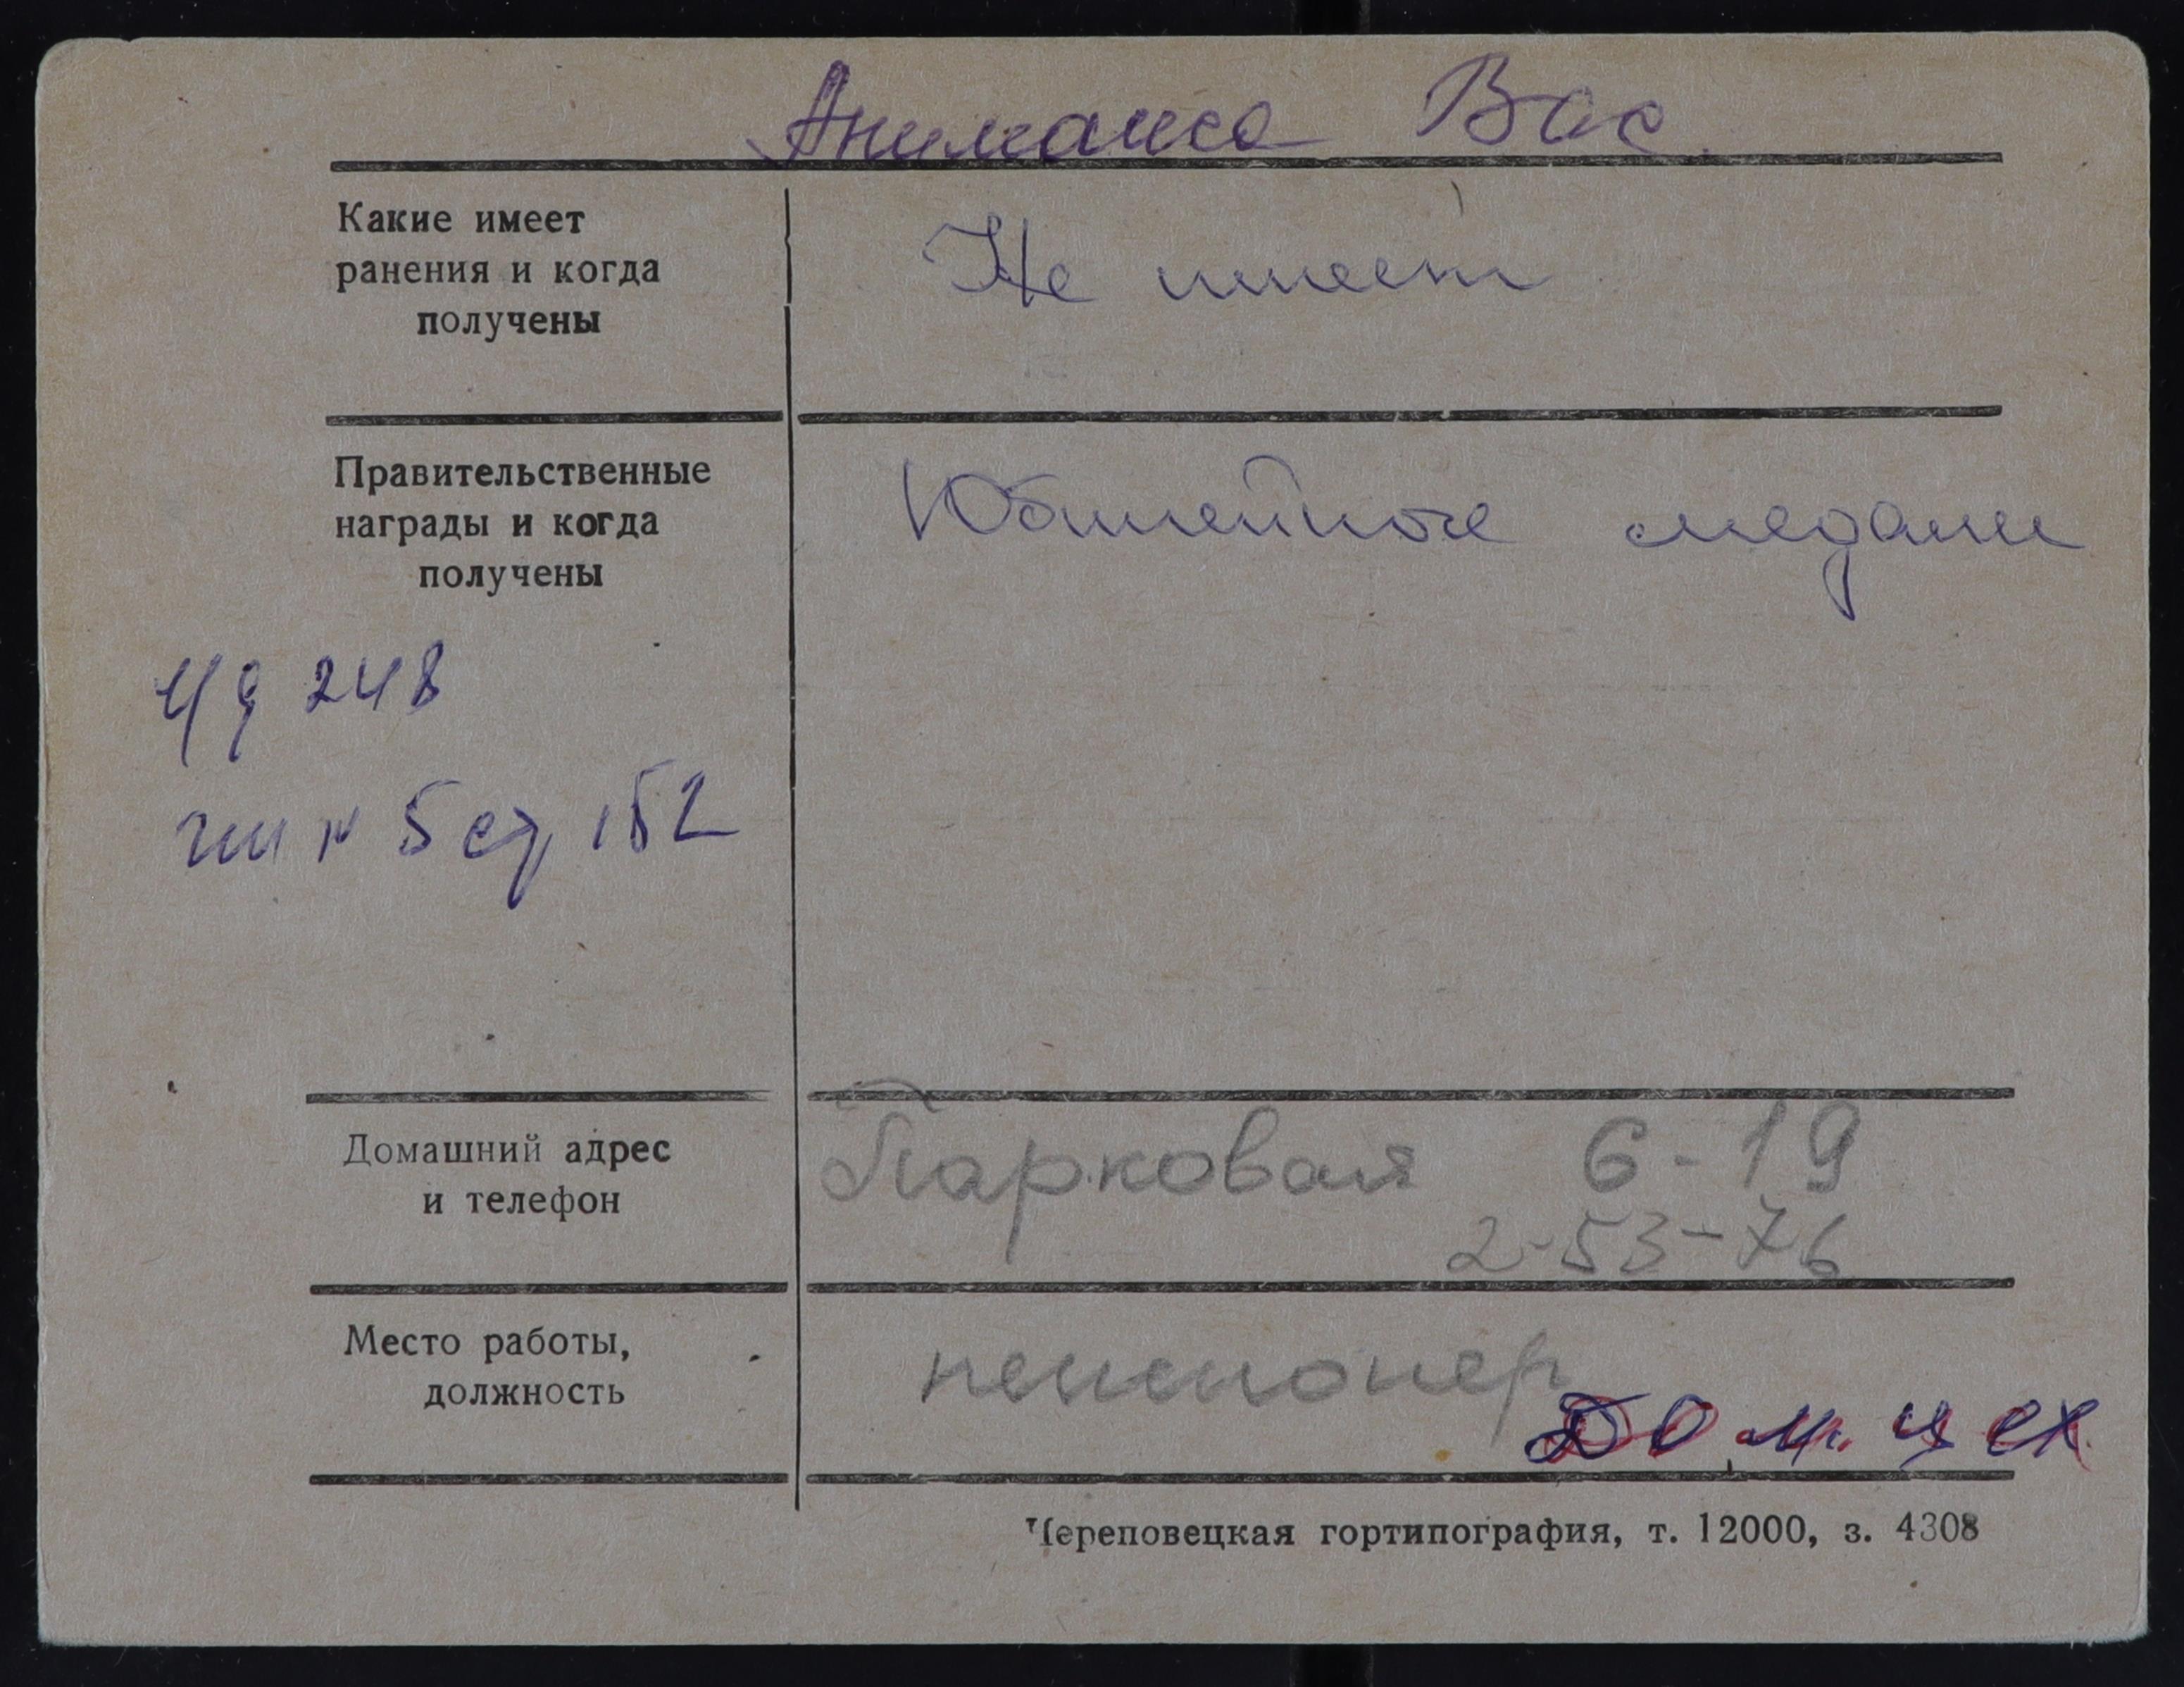 Анимаиса Вас.
Какие имеет
ранения и когда
получены
Не имеет
Правительственные
награды и когда
получены
Юбилейные медали
248
5 ст 152
Домашний адрес
и телефон
Парковая 6-19
2-53-76
Место работы,
должность
пенсионер
Дом. цех
Череповецкая гортипография, т. 12000, з. 4308